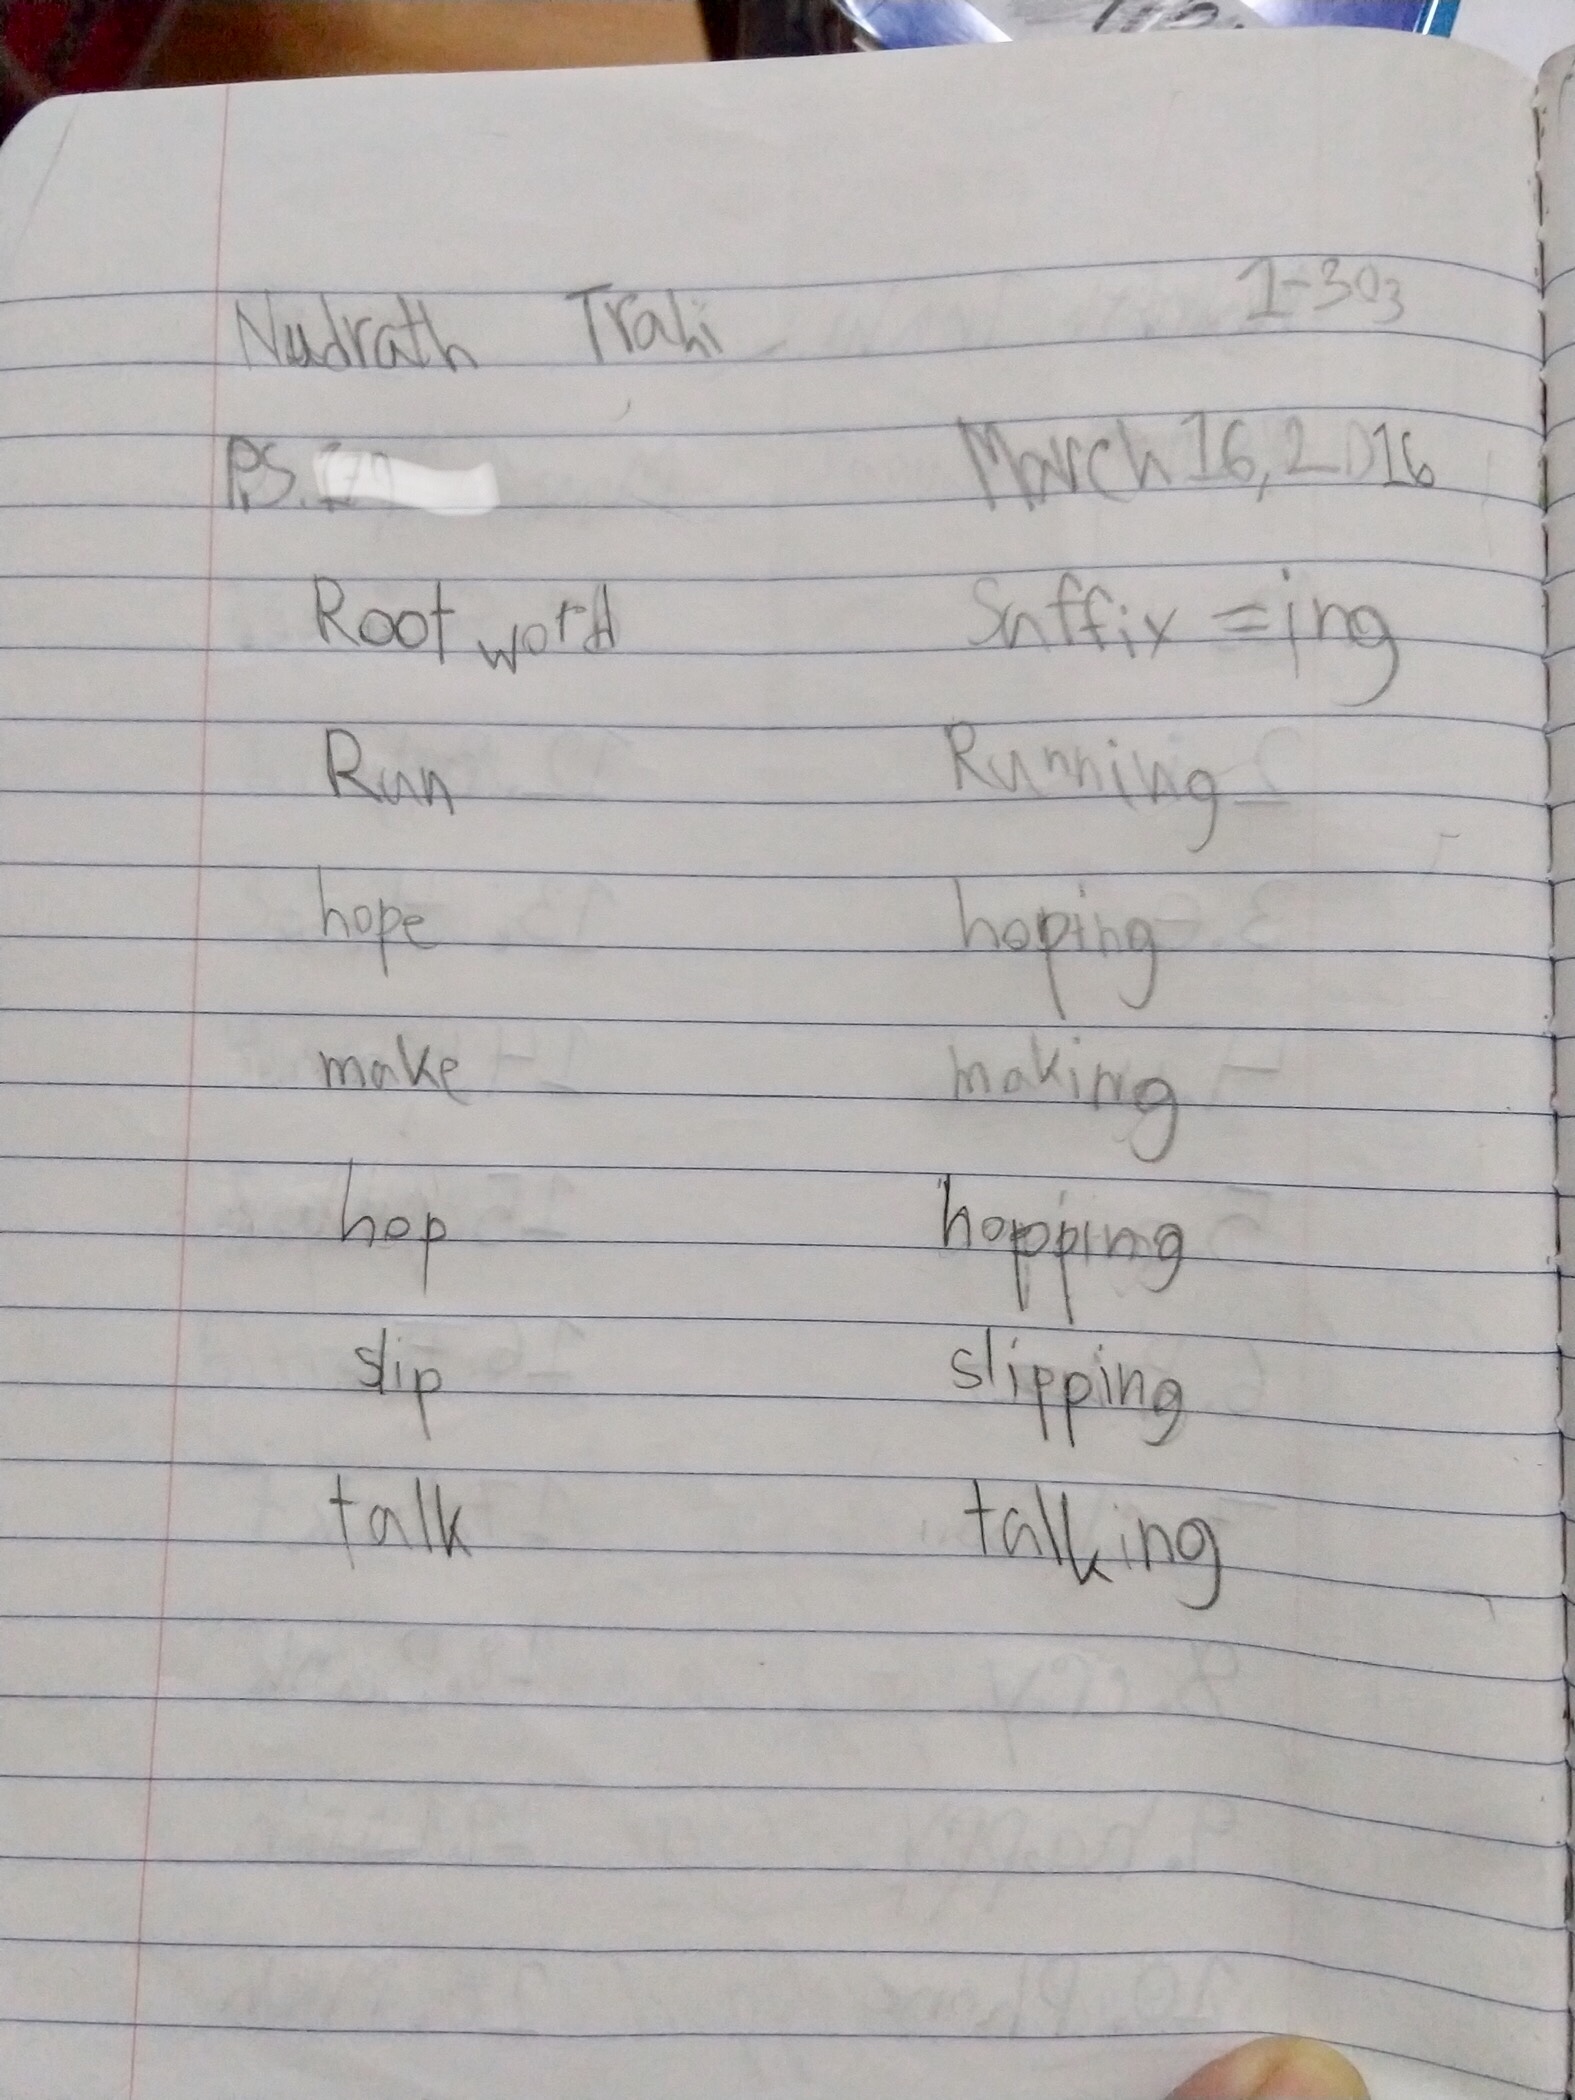 Nudrath Trahi 1-303
P.S.
March 16, 2016
Root word Suffix = ing
Run Running
hope hoping
make making
hop hopping
slip slipping
talk talking